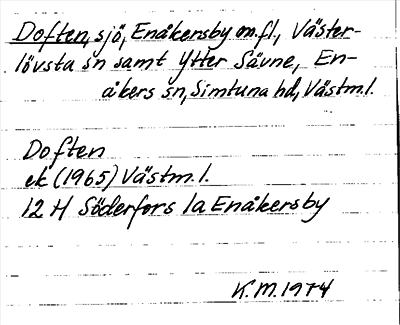 Doften, sjö, Enåkersby m.fl., Väster-
lövsta sn samt Ytter Sävne, En-
åkers sn, Simtuna hd, Västm.l.
Doften
ek (1965) Västm. l.
12 H Söderfors 1a Enåkersby
K.M. 1974